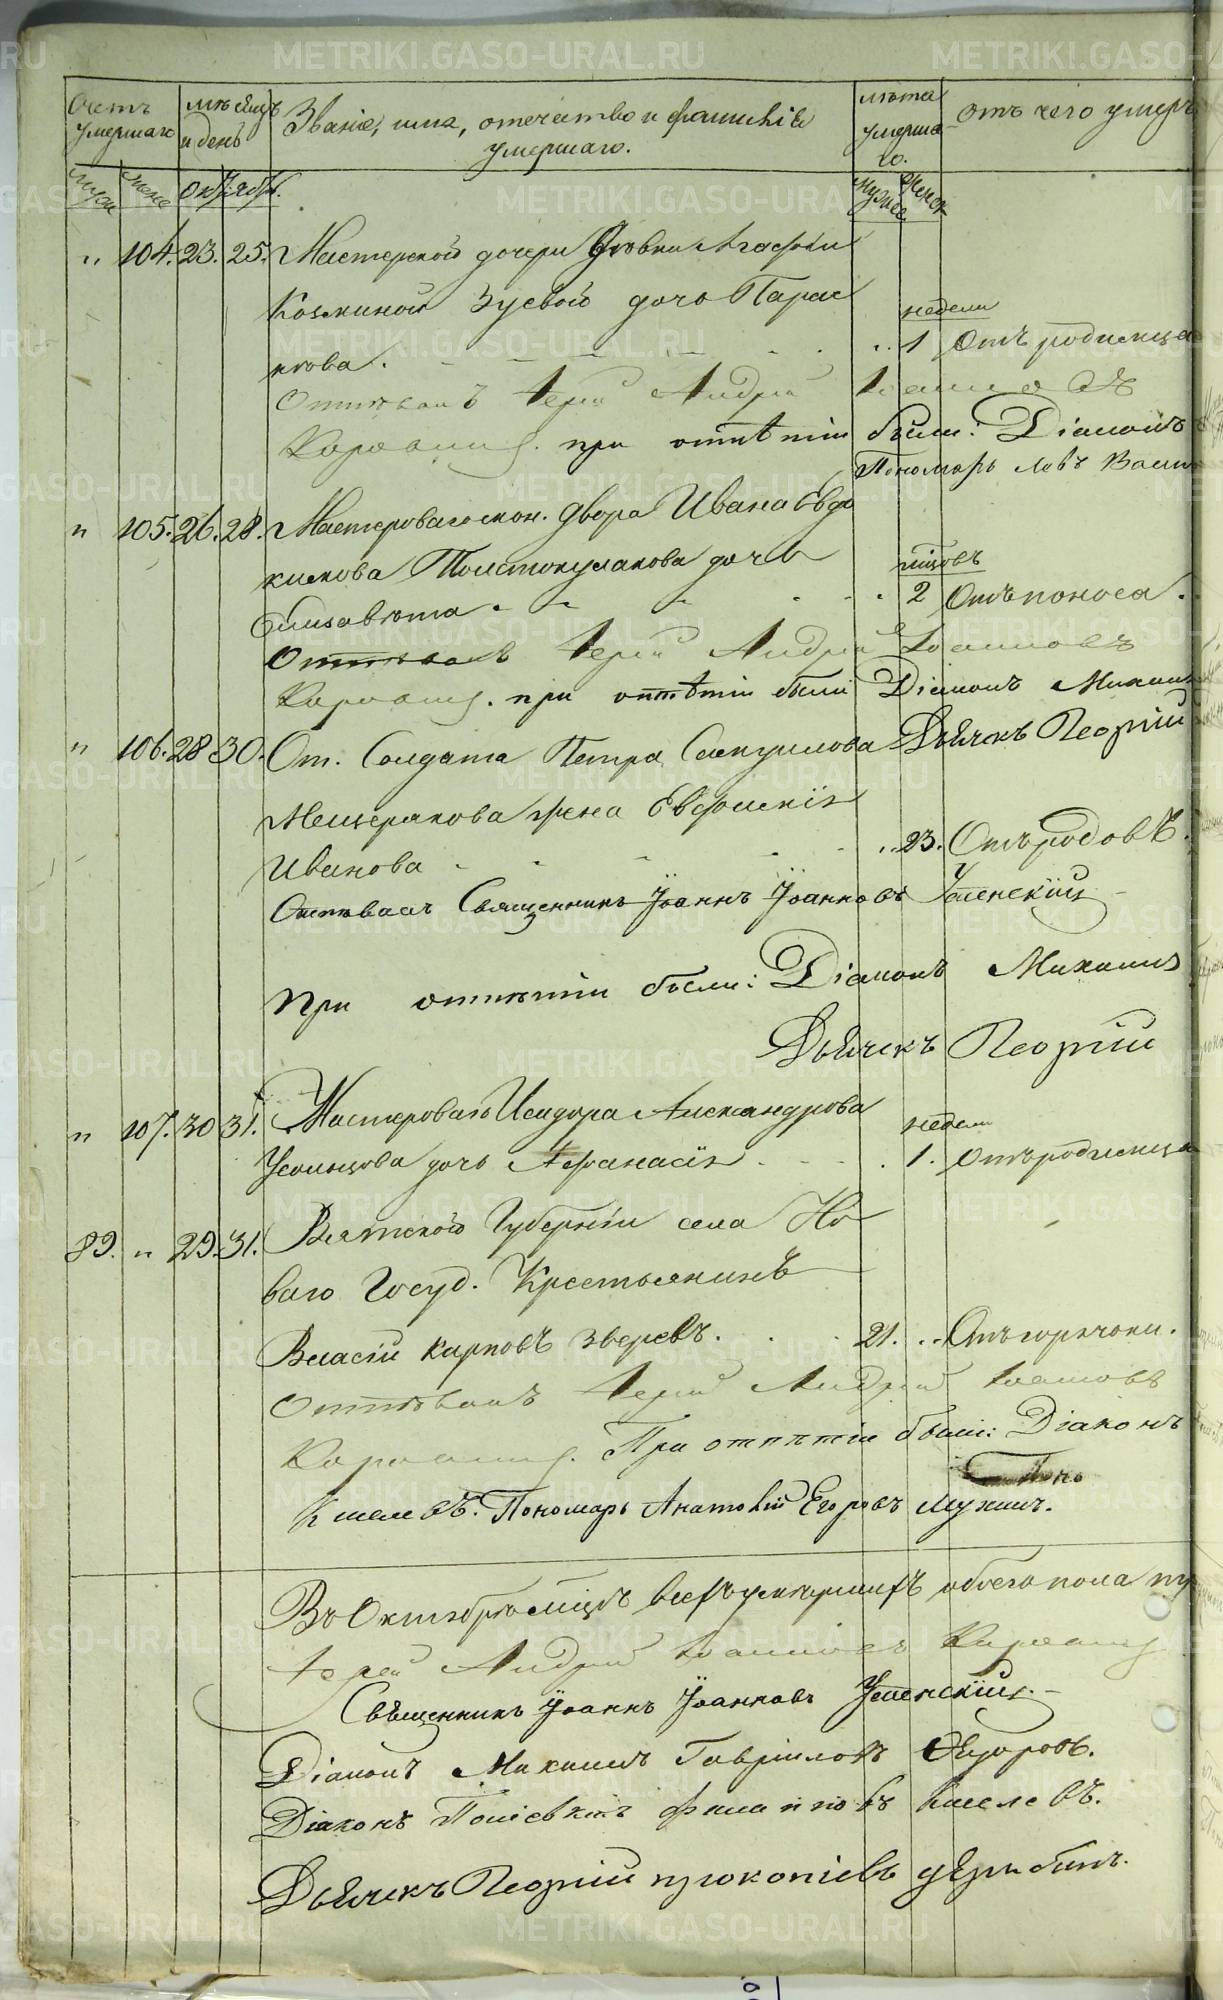 Счетъ умершаго
мѣсяцъ и день
Званіе, имя, отечество и фамилія умершаго.
лѣта умершаго.
отъ чего умеръ
муж женс Октября. мужес женск
" 104. 23. 25. Мастерской дочери дѣвки Агафьи
Козминой Зуевой дочь Парас
недели
кова. 1 Отъ родимца
Отпѣвалъ Іерей Андрей Іоанновъ
при отпѣтіи были: Діаконъ
Пономарь Левъ Васил
" 105. 26. 28. Мастероваго кон. двора Ивана Евдо
кимова Толстокулакова дочь
мѣсцовъ
Елисавѣта 2 Отъ поноса.
Отпѣвалъ Іерей Андрей Іоанновъ
при отпѣтіи были Діаконъ Михаил
Дьячекъ Георгій
" 106. 28 30. От. Солдата Петра
Мещерякова жена Евфимія
Иванова 23. Отъ родовъ.
Отпѣвалъ Священникъ Іоаннъ Іоанновъ Успенскій
При отпѣтіи были: Діаконъ Михаилъ
Дьячекъ Георгій
" 107. 30 31. Мастероваго Исидора Александрова
недели
Усольцова дочь Афанасія 1. Отъ родимца
89. " 29. 31. Вятской Губерніи села Но
ваго Госуд. Крестьянинъ
Власій Карповъ Зверевъ. 21. Отъ горячки.
Отпѣвалъ Іерей Андрей Іоанновъ
При отпѣтіи были: Діаконъ
Киселевъ. Пономарь Анатолій Егоровъ Мухинъ.
Въ Октябрѣ мѣсцѣ всехъ умершихъ обоего пола
Іерей Андрей Іоанновъ
Священникъ Іоаннъ Іоанновъ Успенскій.
Діаконъ Михаилъ Гавріиловъ Ѳедоровъ.
Діаконъ Поліевктъ Филиповъ Киселевъ.
Дьячекъ Георгій Прокопіевъ
METRIKI.GASO-URAL.RU